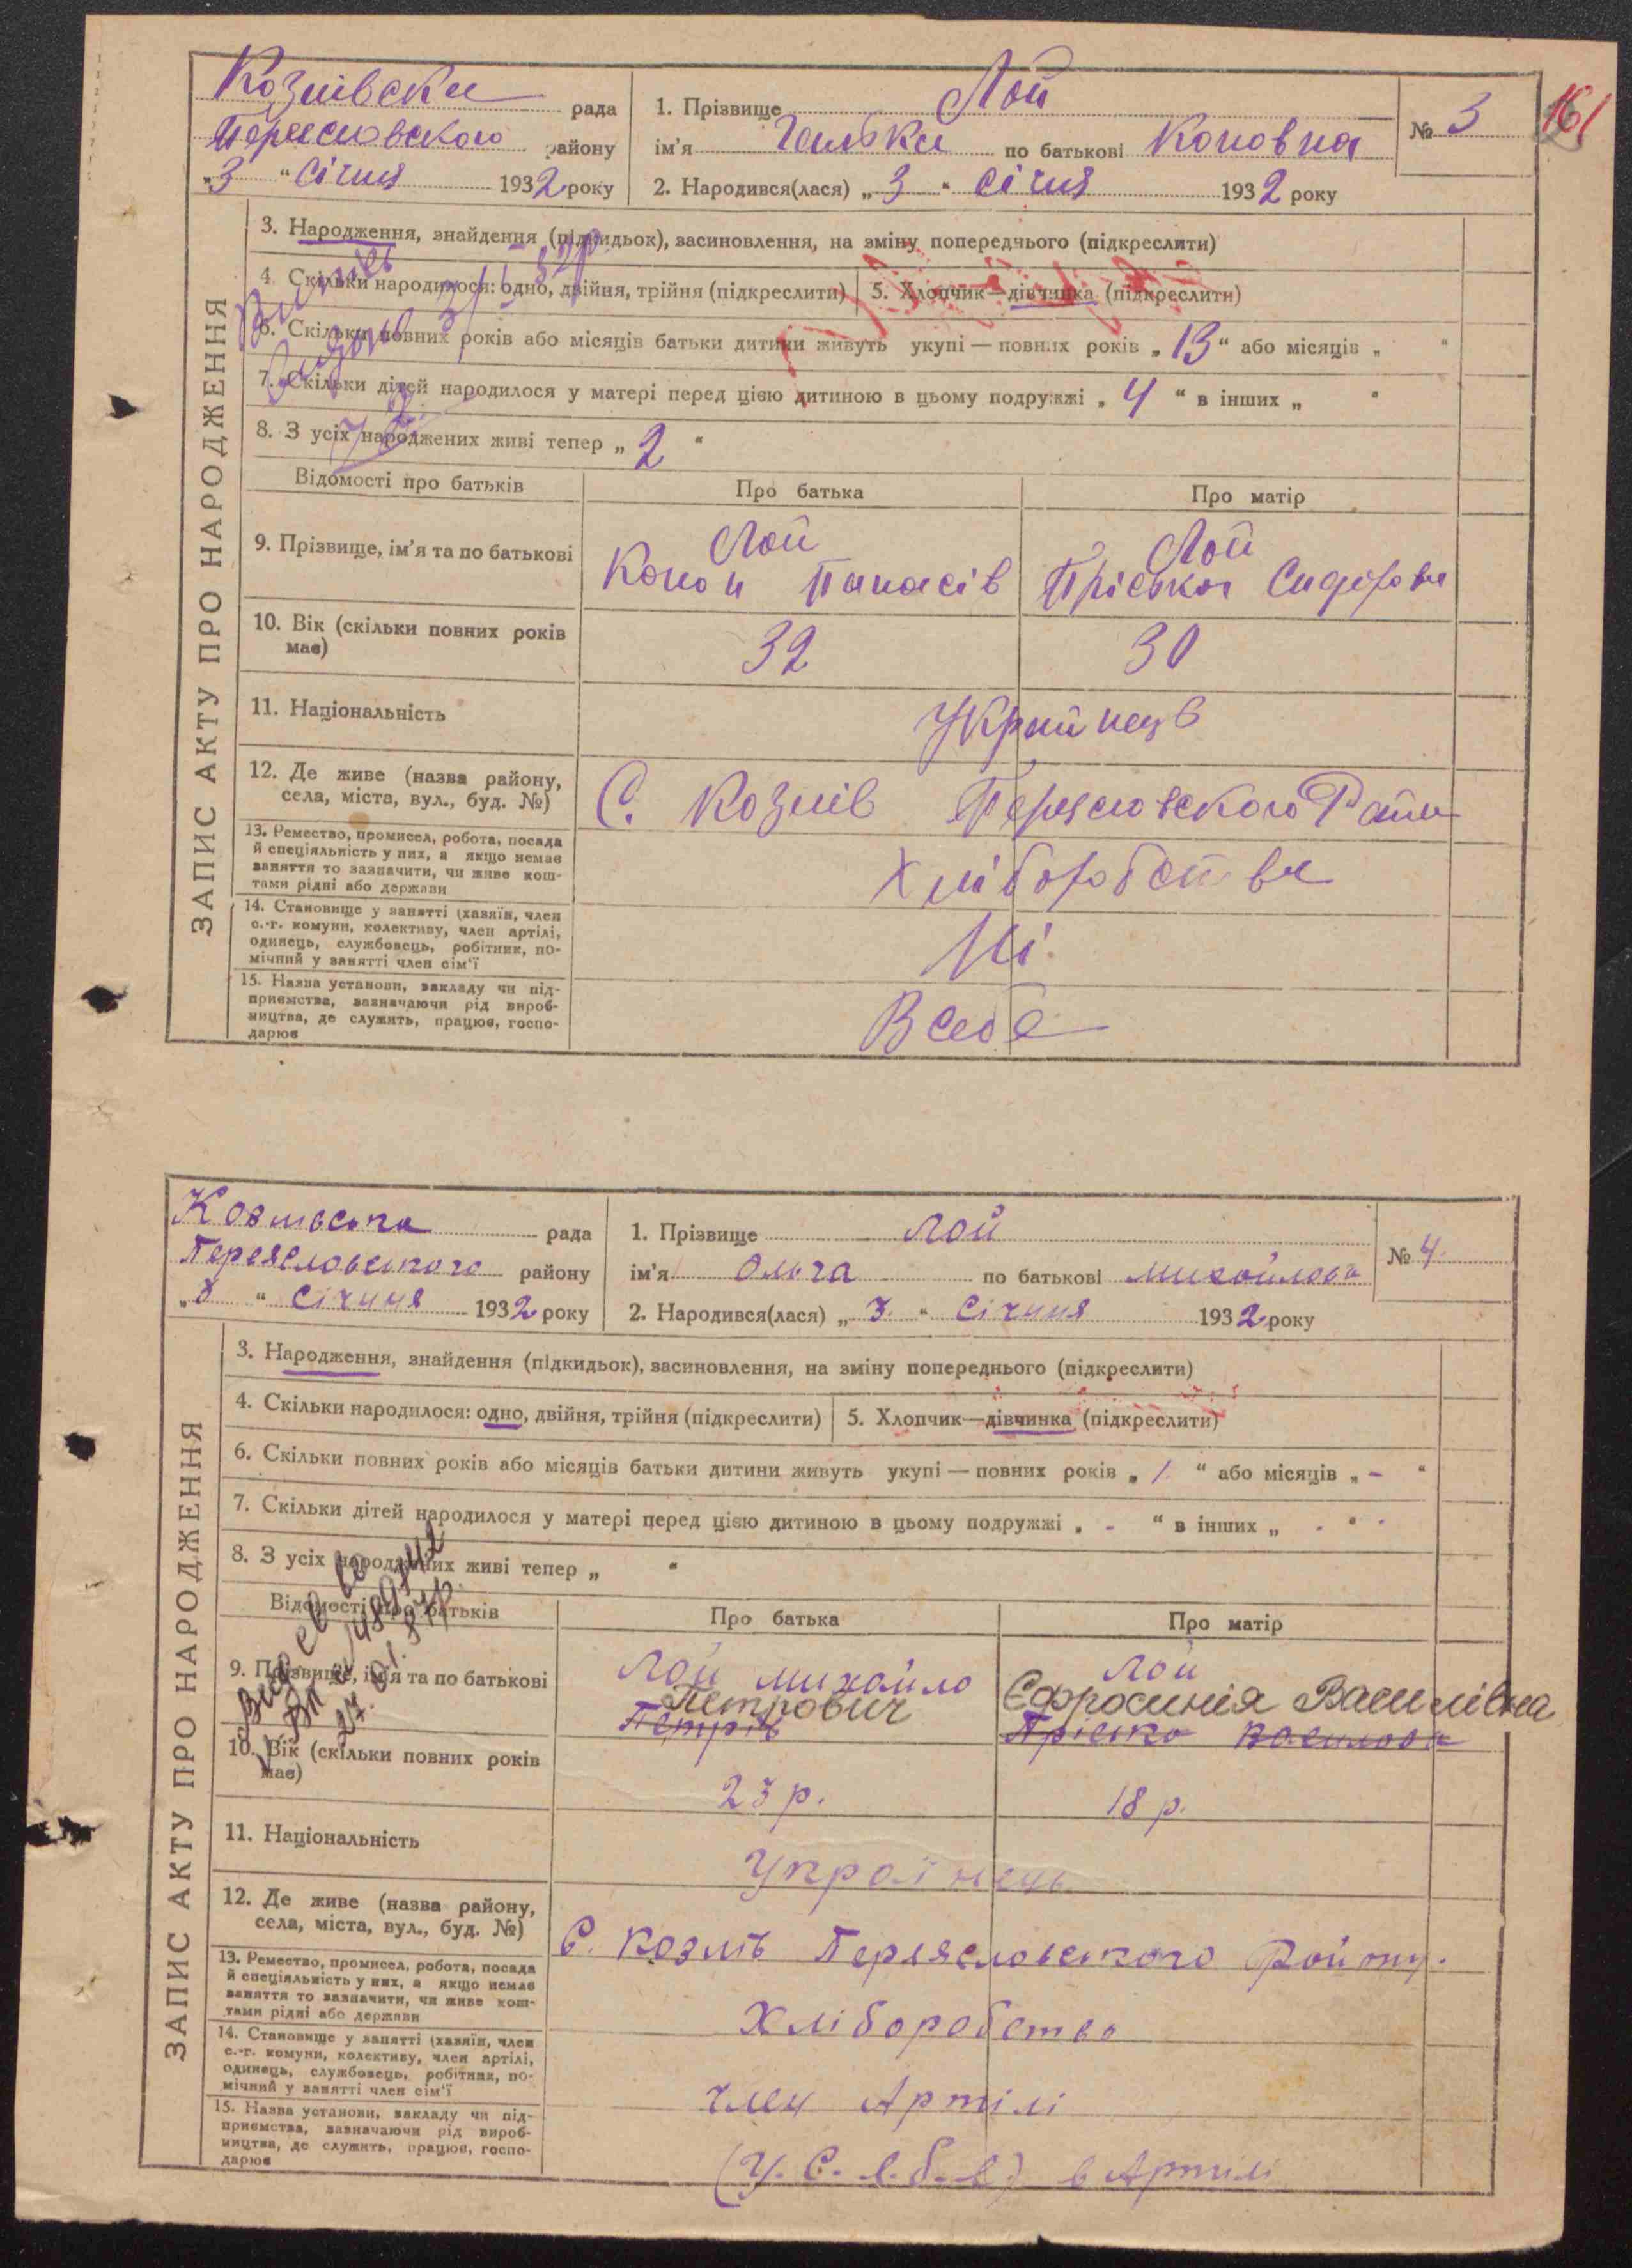 Козлівска рада
Переясловского району
„3 “ Січня 1932 року
1. Прізвище Лой
ім'я Галька по батькові Кононовна
2. Народився(лася) „ 3 “ Січня 1932 року
№ 3
161
ЗАПИС АКТУ ПРО НАРОДЖЕННЯ
3. Народження, знайдення (підкидьок), засиновлення, на зміну попереднього (підкреслити)
4. Скільки народилося: одно, двійня, трійня (підкреслити)
5. Хлопчик—дівчинка (підкреслити)
6. Скільки повних років або місяців батьки дитини живуть укупі — повних років „ 13 “ або місяців „ “
7. Скільки дітей народилося у матері перед цією дитиною в цьому подружжі „ 4 “ в інших „ “
8. З усіх народжених живі тепер „ 2 “
Відомості про батьків
Про батька
Про матір
9. Прізвище, ім'я та по батькові
Лой
Конон Панасів
Лой
Пріська Сидорова
10. Вік (скільки повних років
має)
32
30
11. Національність
Українец
12. Де живе (назва району,
села, міста, вул., буд. №)
С. Козлів Переясловского Райи
13. Ремество, промисел, робота, посада
й спеціяльність у них, а якщо немає
заняття то зазначити, чи живе кош-
тами рідні або держави
Хліборобства
14. Становище у занятті (хазяїн, член
с.-г. комуни, колективу, член артілі,
одинець, службовець, робітник, по-
мічний у занятті член сім'ї
15. Назва установи, закладу чи під-
приємства, зазначаючи рід вироб-
ництва, де служить, працює, госпо-
дарює
В себе
Козлівска рада
Переясловського району
„3 “ Січння 1932 року
1. Прізвище Лой
ім'я Ольга по батькові Михайлова
2. Народився(лася) „ 3. “ Січння 1932 року
№ 4.
ЗАПИС АКТУ ПРО НАРОДЖЕННЯ
3. Народження, знайдення (підкидьок), засиновлення, на зміну попереднього (підкреслити)
4. Скільки народилося: одно, двійня, трійня (підкреслити)
5. Хлопчик—дівчинка (підкреслити)
6. Скільки повних років або місяців батьки дитини живуть укупі — повних років „ 1. “ або місяців „ - “
7. Скільки дітей народилося у матері перед цією дитиною в цьому подружжі „ - “ в інших „ - “
8. З усіх народжених живі тепер „ “
Відомості про батьків
Про батька
Про матір
9. Прізвище, ім'я та по батькові
Лой Михайло
Петрович
Петрів
Лой
Єфросинія Василівна
Пріська Василова
10. Вік (скільки повних років
має)
23 р.
18 р.
11. Національність
Українець
12. Де живе (назва району,
села, міста, вул., буд. №)
С. Козлів Переясловського Району.
13. Ремество, промисел, робота, посада
й спеціяльність у них, а якщо немає
заняття то зазначити, чи живе кош-
тами рідні або держави
Хліборобство
14. Становище у занятті (хазяїн, член
с.-г. комуни, колективу, член артілі,
одинець, службовець, робітник, по-
мічний у занятті член сім'ї
член Артілі
15. Назва установи, закладу чи під-
приємства, зазначаючи рід вироб-
ництва, де служить, працює, госпо-
дарює
в Артілі